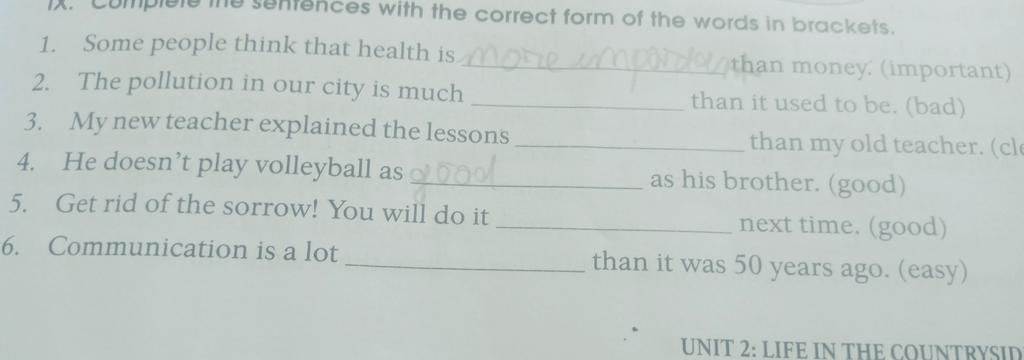 IX. Complete the sentences with the correct form of the words in brackets.
1. Some people think that health is more important than money. (important)
2. The pollution in our city is much ____ than it used to be. (bad)
3. My new teacher explained the lessons ____ than my old teacher. (cle
4. He doesn't play volleyball as good as his brother. (good)
5. Get rid of the sorrow! You will do it ____ next time. (good)
6. Communication is a lot ____ than it was 50 years ago. (easy)
UNIT 2: LIFE IN THE COUNTRYSID